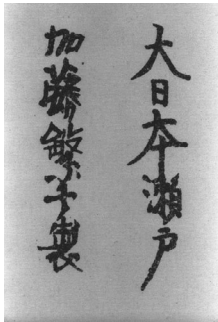 大日本瀬戸
加藤繁子製